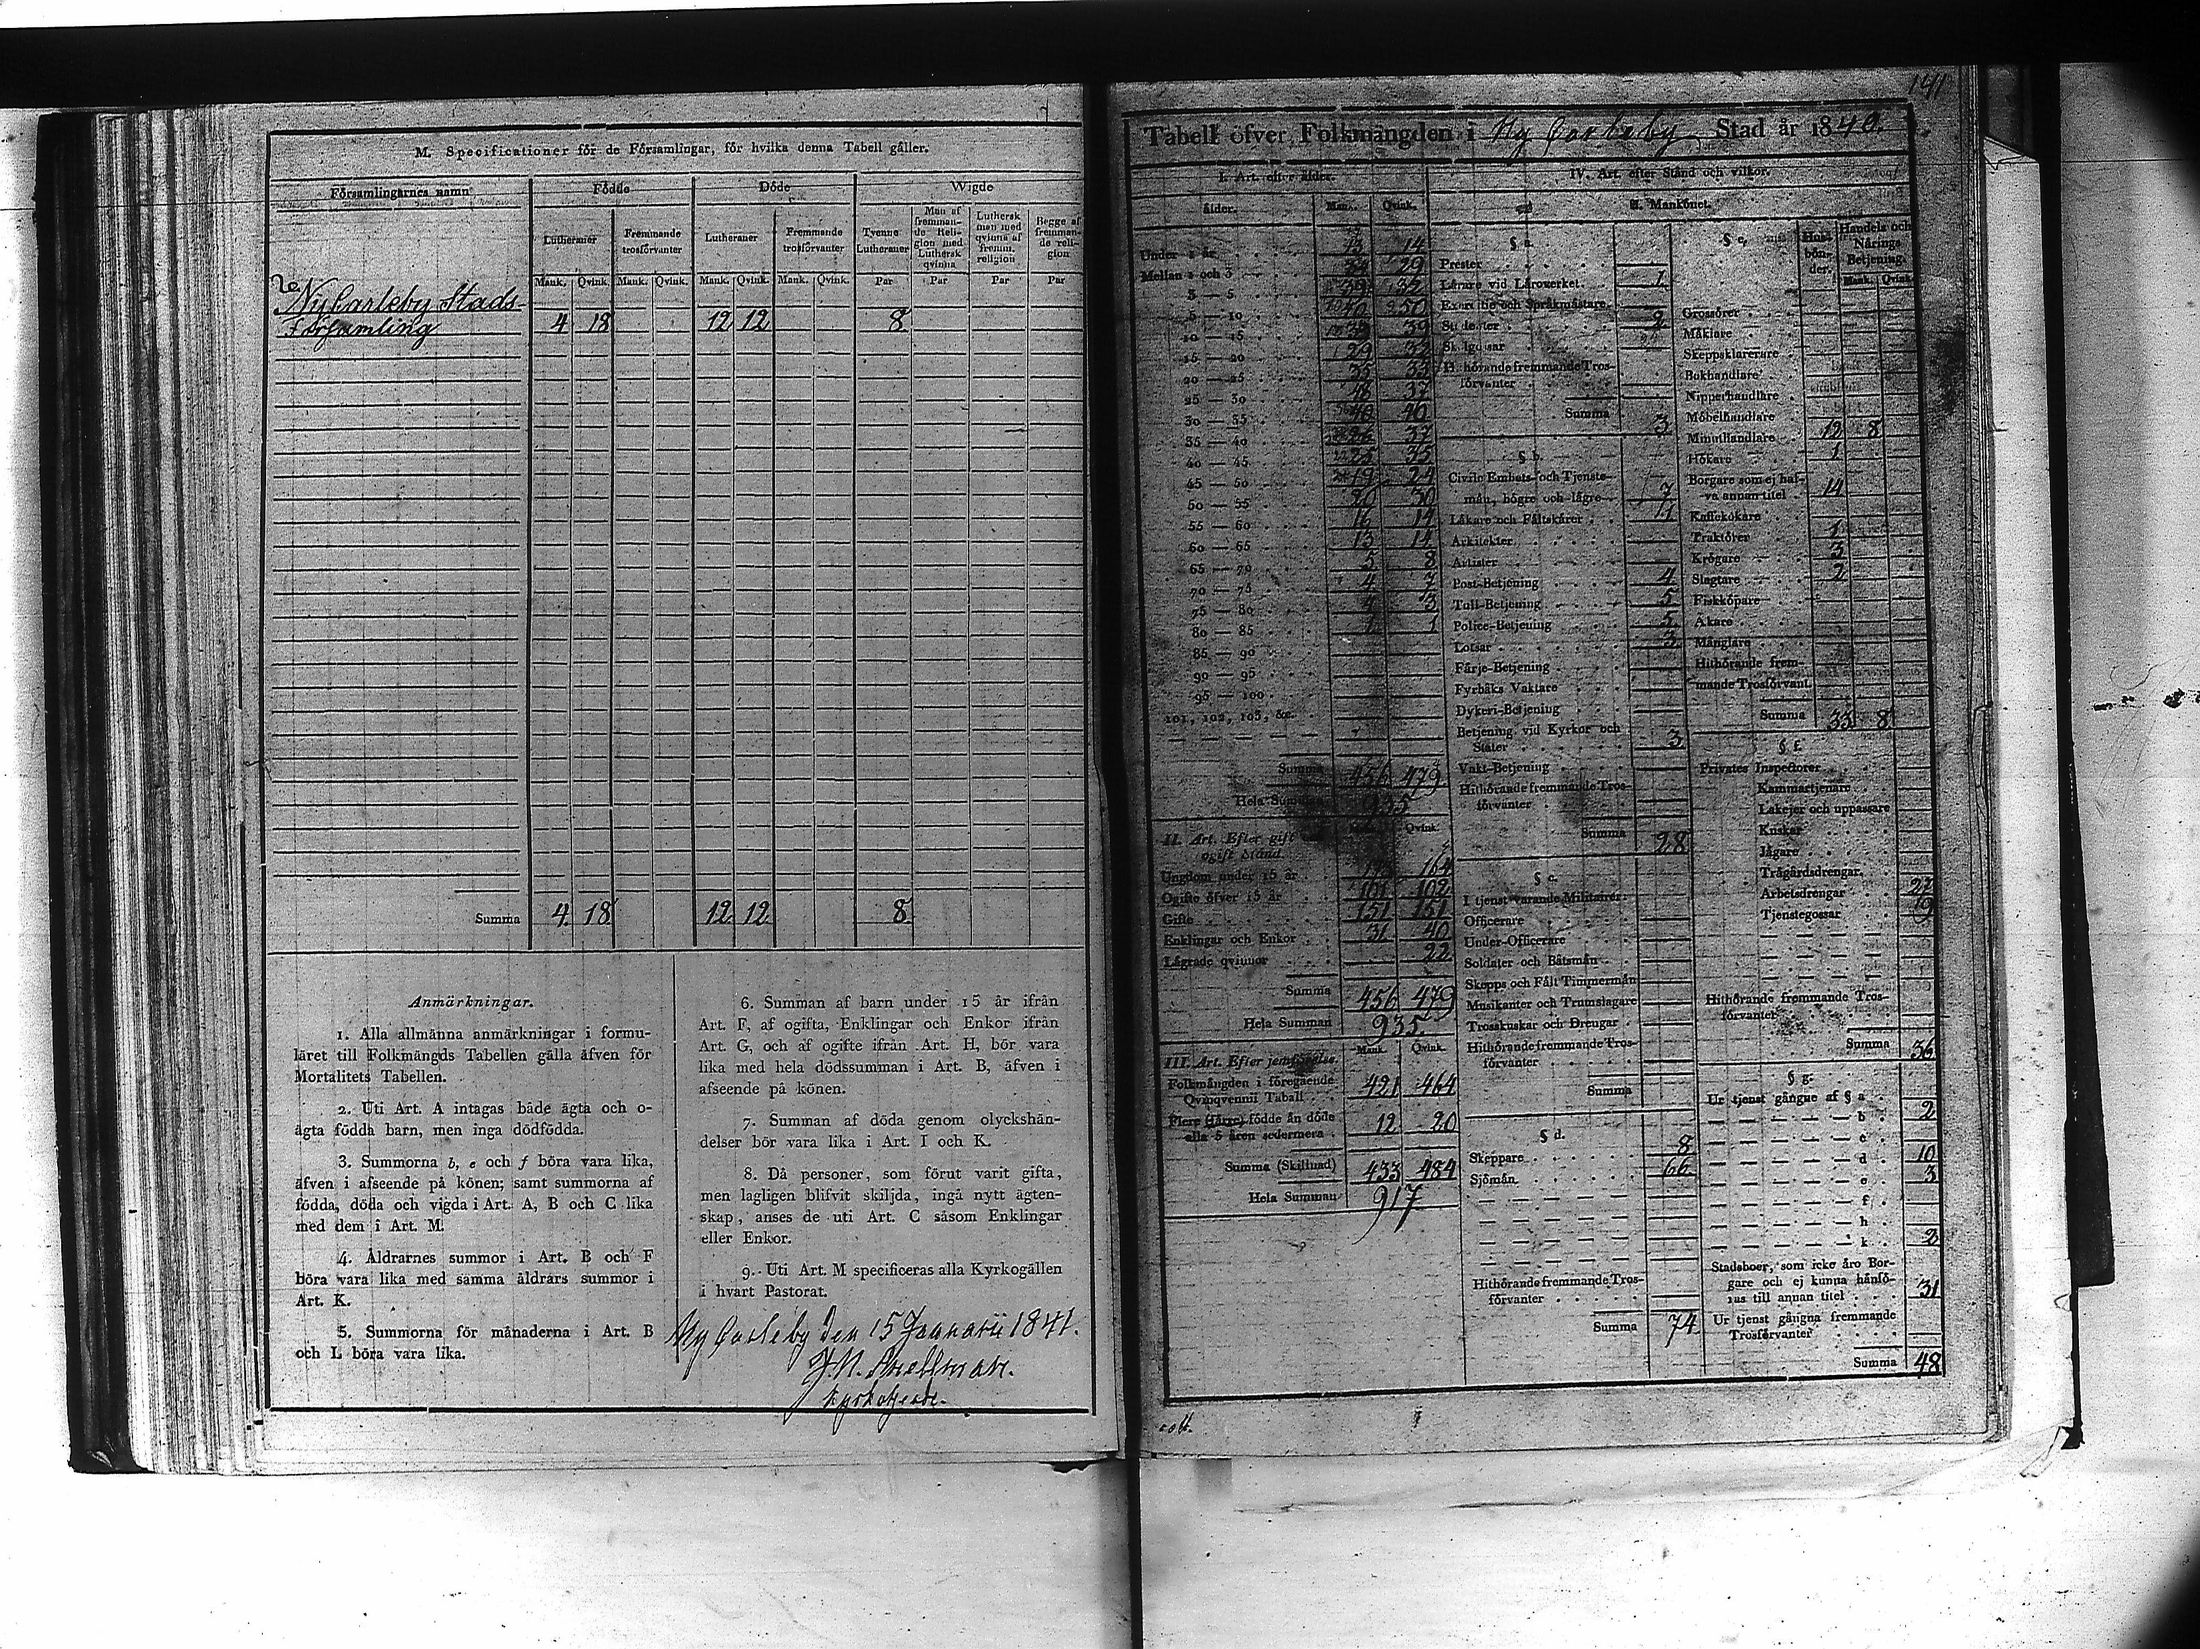 M. Specificationer för de Församlingar, för hvilka denna Tabell gäller.
Församlingarnes namn
Födde
Döde
Wigde
Lutheraner
Fremmande trosförvanter
Lutheraner
Fremmande trosförvanter
Tvenne Lutheraner
Man af fremmande Religion med Luthersk qvinna
Luthersk man med qvinna af fremm. religion
Begge af fremmande religion
Mank. Qvink. Mank. Qvink. Mank. Qvink. Mank. Qvink. Par Par Par Par
NyCarleby Stads-
Församling 4 18 12 12 8
Summa 4 18 12 12 8
Anmärkningar.
1. Alla allmänna anmärkningar i formu-
läret till Folkmängds Tabellen gälla äfven för
Mortalitets Tabellen.
2. Uti Art. A intagas både ägta och o-
ägta födda barn, men inga dödfödda.
3. Summorna b, e och f böra vara lika,
äfven i afseende på könen; samt summorna af
födda, döda och vigda i Art. A, B och C lika
med dem i Art. M.
4. Åldrarnes summor i Art. B och F
böra vara lika med samma åldrars summor i
Art. K.
5. Summorna för månaderna i Art. B
och L böra vara lika.
6. Summan af barn under 15 år ifrån
Art. F, af ogifta, Enklingar och Enkor ifrån
Art. G, och af ogifte ifrån Art. H, bör vara
lika med hela dödssumman i Art. B, äfven i
afseende på könen.
7. Summan af döda genom olyckshän-
delser bör vara lika i Art. I och K.
8. Då personer, som förut varit gifta,
men lagligen blifvit skiljda, ingå nytt ägten-
skap, anses de uti Art. C såsom Enklingar
eller Enkor.
9. Uti Art. M specificeras alla Kyrkogällen
i hvart Pastorat.
Ny Carleby den 15 Januarii 1841.
J. N. Snellman.
141
Tabell öfver Folkmängden i Ny Carleby Stad år 1840.
I. Art. efter ålder.
ålder. Mank. Qvink.
Under 1 år 14
Mellan 1 och 3 29
3 — 5
5 — 10 50
10 — 15 39
15 — 20 29 32
20 — 25 35 33
25 — 30 48 37
30 — 35 40
35 — 40 37
40 — 45 25 35
45 — 50 19 24
50 — 55 20 30
55 — 60 16 14
60 — 65 13 14
65 — 70 5 8
70 — 75 4 7
75 — 80 4 3
80 — 85 1 1
85 — 90
90 — 95
95 — 100
101, 102, 103, &c.
Summa 456 479
Hela Summan 935
II. Art. Efter gift
ogift Stånd. Qvink.
Ungdom under 15 år 164
Ogifte öfver 15 år 101 102
Gifte 151 151
Enklingar och Enkor 31 40
Lägrade qvinnor 22
Summa 456 479
Hela Summan 935.
III. Art. Efter jemförelse. Mank. Qvink.
Folkmängden i föregående
Qvinqvennii Tabell 421 464
Flere (färre) födde än döde
alla 5 åren sedermera 12 20
Summa (Skillnad) 433 484
Hela Summan 917
IV. Art. efter Stånd och vilkor.
Mankönet.
§ a.
Prester
Lärare vid Läroverket 1
Exercitie och Språkmästare
Studenter 2
Skolgossar
Hithörande fremmande Tros-
förvanter
Summa 3
§ b.
Civile Embets- och Tjenste-
män, högre och lägre 7
Läkare och Fältskärer 1
Arkitekter
Artister
Post-Betjening 4
Tull-Betjening 5
Police-Betjening 5
Lotsar 3
Färje-Betjening
Fyrbåks Vaktare
Dykeri-Betjening
Betjening vid Kyrkor och
Stäter 3
Vakt-Betjening
Hithörande fremmande Tros-
förvanter
Summa 28
§ c.
I tjenst varande Militairer
Officerare
Under-Officerare
Soldater och Båtsmän
Skepps och Fält Timmermän
Musikanter och Trumslagare
Trosskuskar och Drengar
Hithörande fremmande Tros-
förvanter
Summa
§ d.
Skeppare 8
Sjömän 66
Hithörande fremmande Tros-
förvanter
Summa 74
§ e.
Husbönder. Handels och Närings Betjening.
Mank. Qvink.
Grossörer
Mäklare
Skeppsklarerare
Bokhandlare
Nipperhandlare
Möbelhandlare
Minuthandlare 12 8
Hökare 1
Borgare som ej haf-
va annan titel 14
Kaffekokare
Traktörer 1
Krögare 3
Slagtare 2
Fiskköpare
Åkare
Månglare
Hithörande frem-
mande Trosförvant.
Summa 33 8
§ f.
Privates Inspectorer
Kammartjenare
Lakejer och uppassare
Kuskar
Jägare
Trägårdsdrengar
Arbetsdrengar 27
Tjenstegossar 9
Hithörande fremmande Tros-
förvanter
Summa 36
§ g.
Ur tjenst gångne af § a
— b 2
— c
— d 10
— e 3
— f
— h
— k 2
Stadsboer, som icke äro Bor-
gare och ej kunna hänfö-
ras till annan titel 31
Ur tjenst gångna fremmande
Trosförvanter
Summa 48